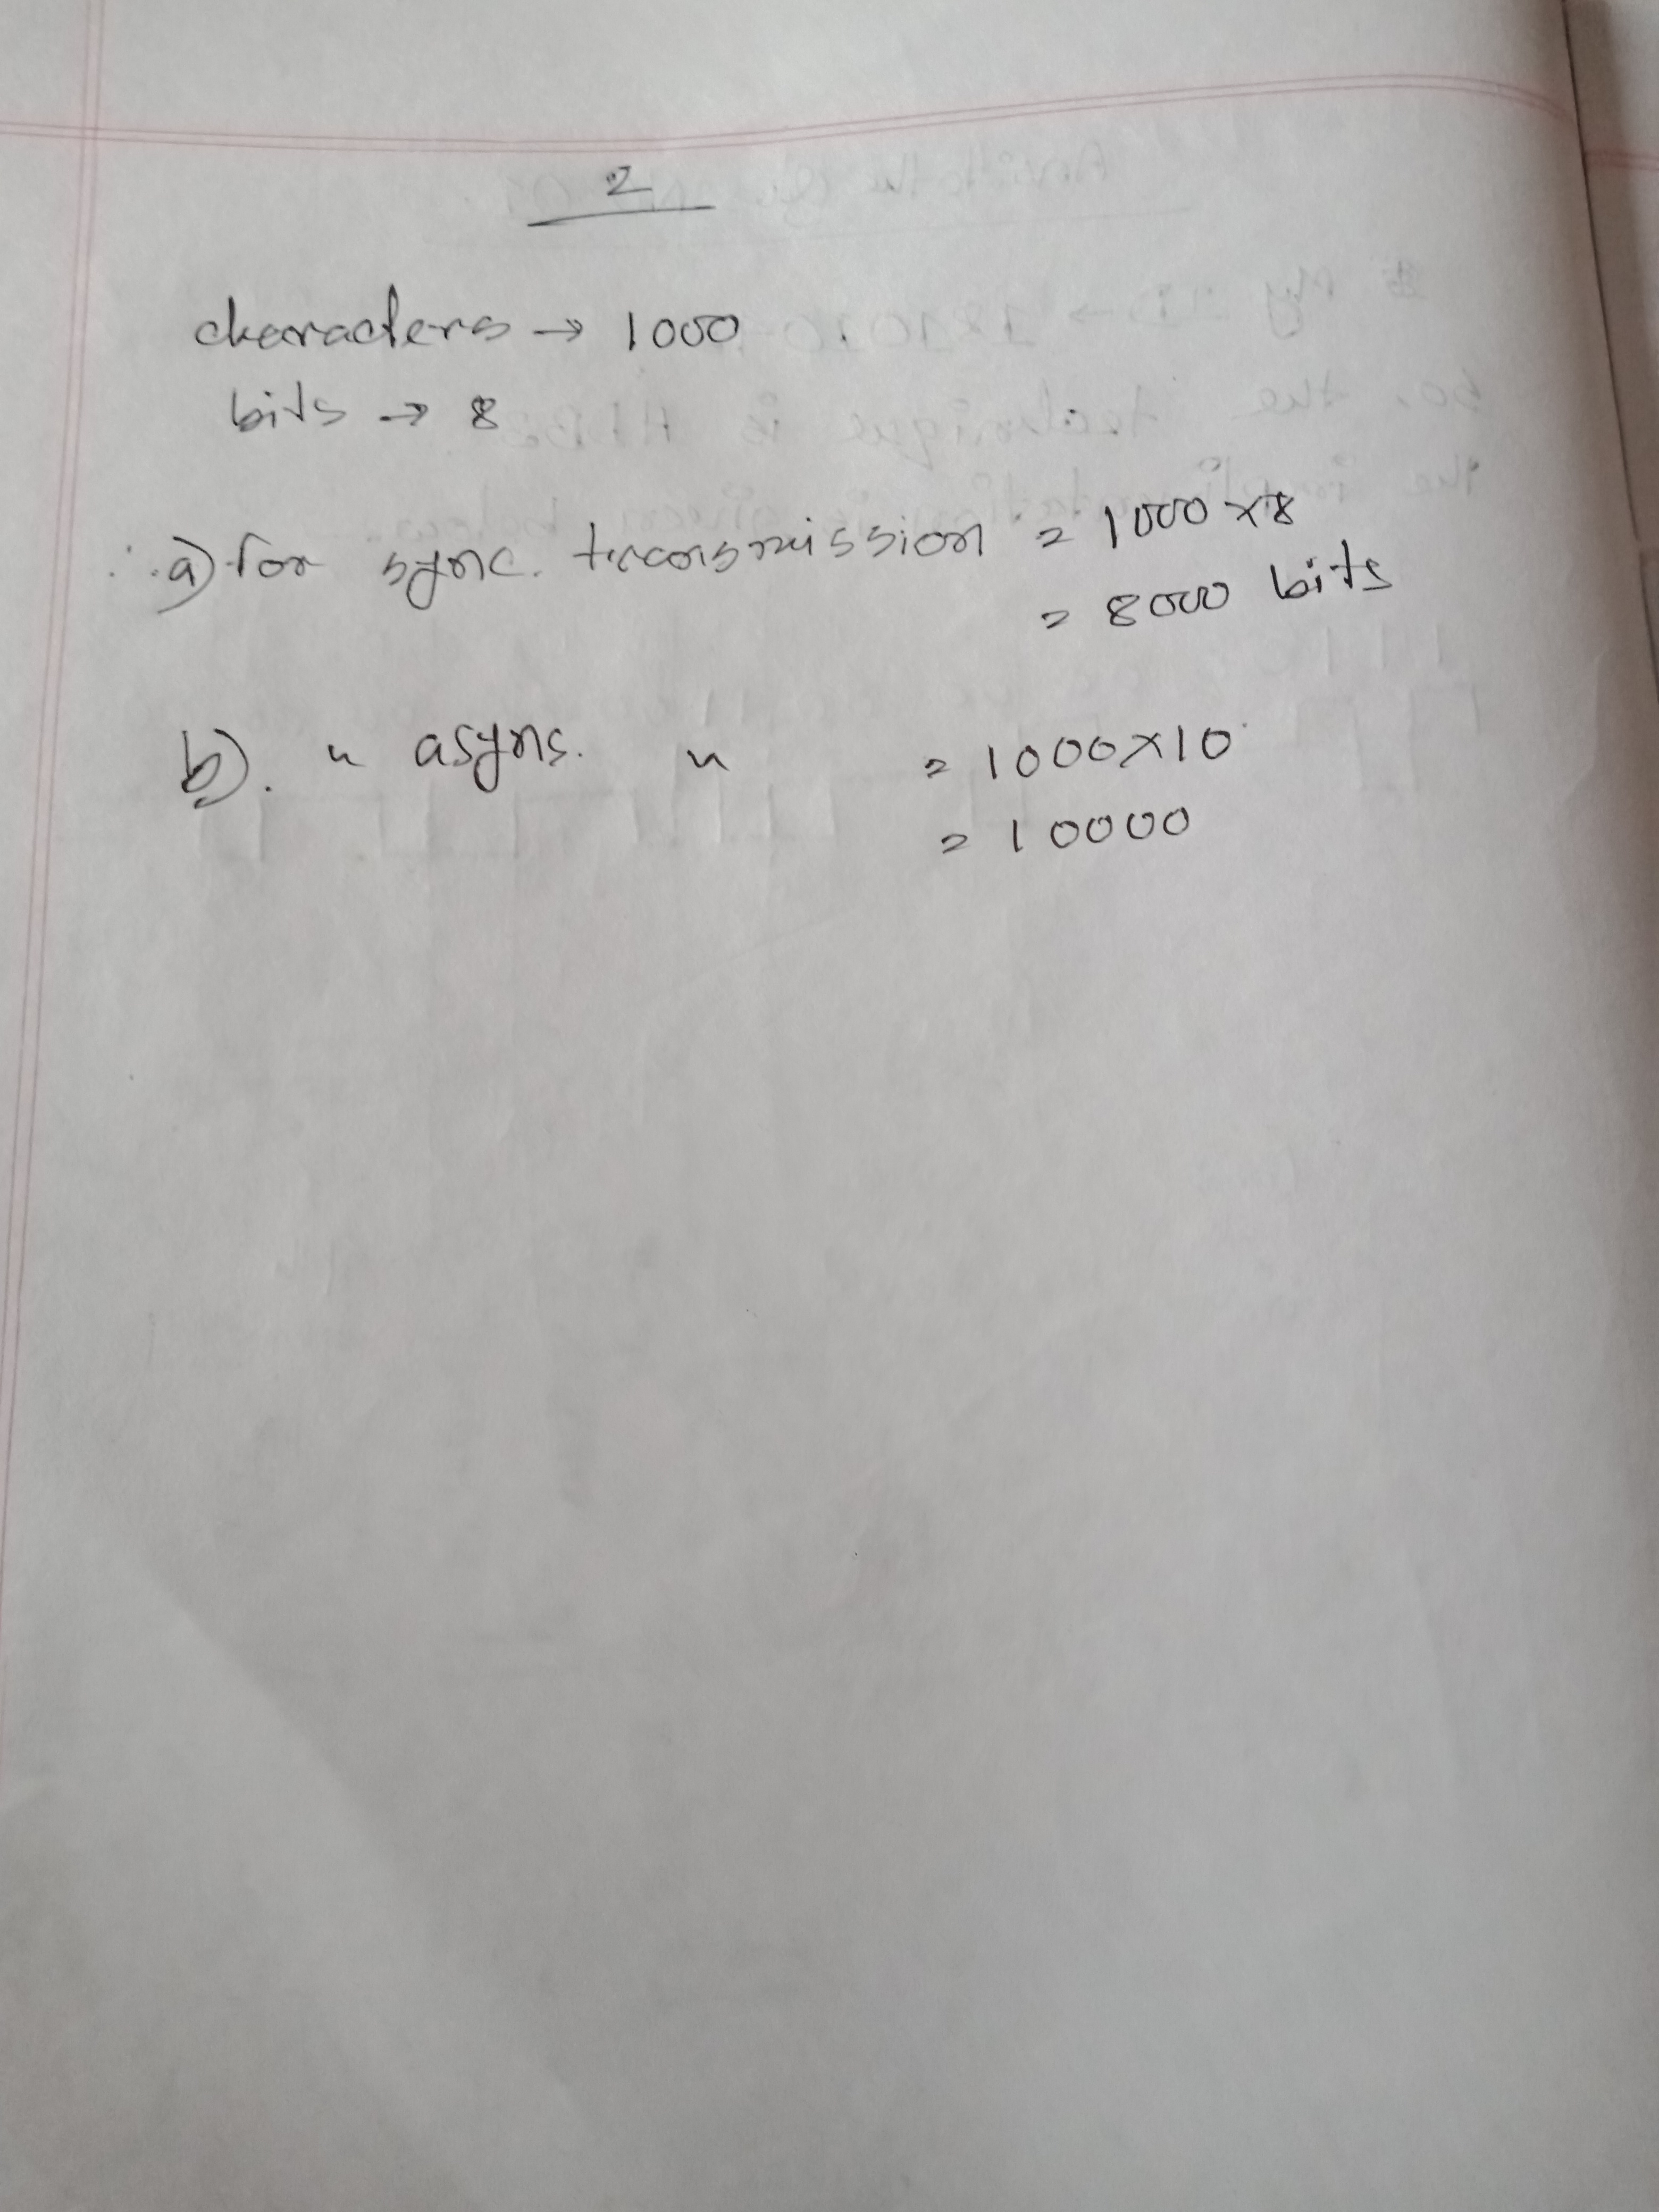 2
characters → 1000
bits → 8
∴ a) for sync. transmission = 1000 × 8
= 8000 bits
b). " asyns. " = 1000×10
= 10000